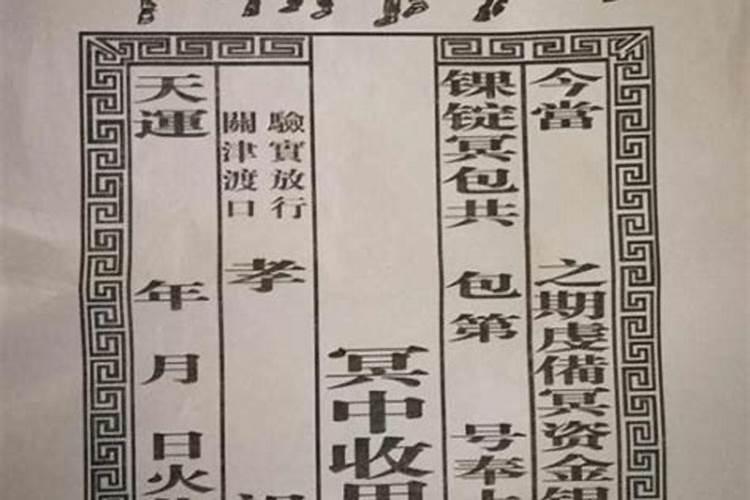 今當 之期虔備冥资金銀
锞锭冥包共 包第 号奉
冥中收用
驗實放行
關津渡口
孝
天運 年 月 日火